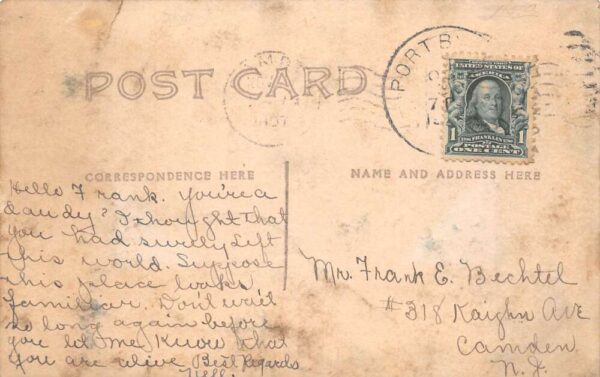 POST CARD
PORT B
7
CAM
190
UNITED STATES OF
AMERICA
FRANKLIN
1 POSTAGE 1
ONE CENT
CORRESPONDENCE HERE
NAME AND ADDRESS HERE
Hello Frank. You're a
dandy? I thought that
you had surely left
this world. Suppose
this place looks
familiar. Don't wait
so long again before
you let me know that
you are alive Best Regards
Nell.
Mr. Frank E. Bechtel
#318 Kaighn Ave
Camden
N.J.